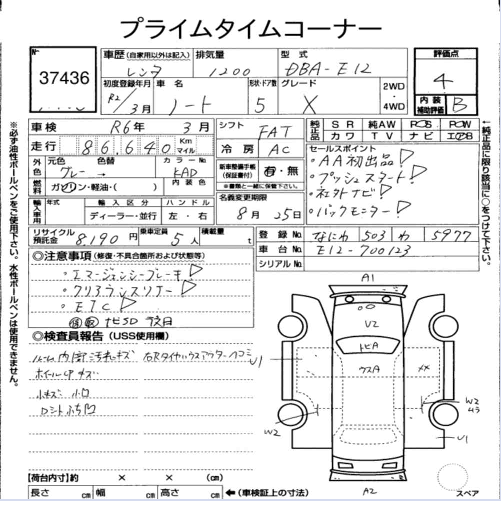 プライムタイムコーナー
No 37436
車歴 (自家用以外は記入) レンタ
排気量 1200
型式 DBA-E12
評価点 4
初度登録年月 R2/3月
車名 ノート
形状・ドア数 5
グレード X
2WD・4WD
内装補助評価 B
車検 R6年 3月
シフト FAT
純正品 SR 純AW PS PW
カワ TV ナビ エアB
走行 86,640 Km マイル
冷房 AC
外色 元色 グレー→ 色替
カラーNo. KAD
内装色
燃料 ガソリン・軽油・( )
新車整備手帳(保証書付) 有・無
※書類と一緒に保管下さい。
セールスポイント
・AA初出品!
・プッシュスタート!
・社外ナビ!
・バックモニター!
輸入車用 年式 輸入区分 ディーラー・並行 ハンドル 左・右
名義変更期限 8月 25日
リサイクル預託金 8190円
乗車定員 5人
積載量 t
登録No. なにわ 503 わ 5977
車台No. E12-700123
シリアルNo.
◎注意事項 (修復・不具合箇所および状態等)
・エマージェンシーブレーキ
・クリアランスソナー
・ETC
ナビSD 後日
◎検査員報告 (USS使用欄)
内装汚れキズ
ホイールキズ
小キズ 小凹
A1
V2
トビA
ウスA
XX
U1
W2
W2
U1
A2
スペア
【荷台内寸】約 × × (cm)
長さ cm 幅 cm 高さ cm ←(車検証上の寸法)
※必ず油性ボールペンをご使用下さい。水性ボールペンは使用できません。
←純正品に限り該当に○をつけて下さい。